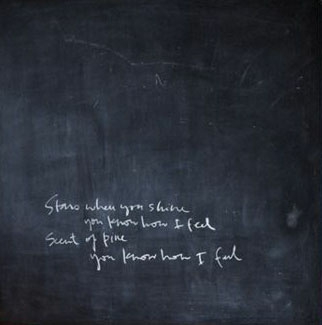 Stars when you shine
you know how I feel
Scent of pine
you know how I feel